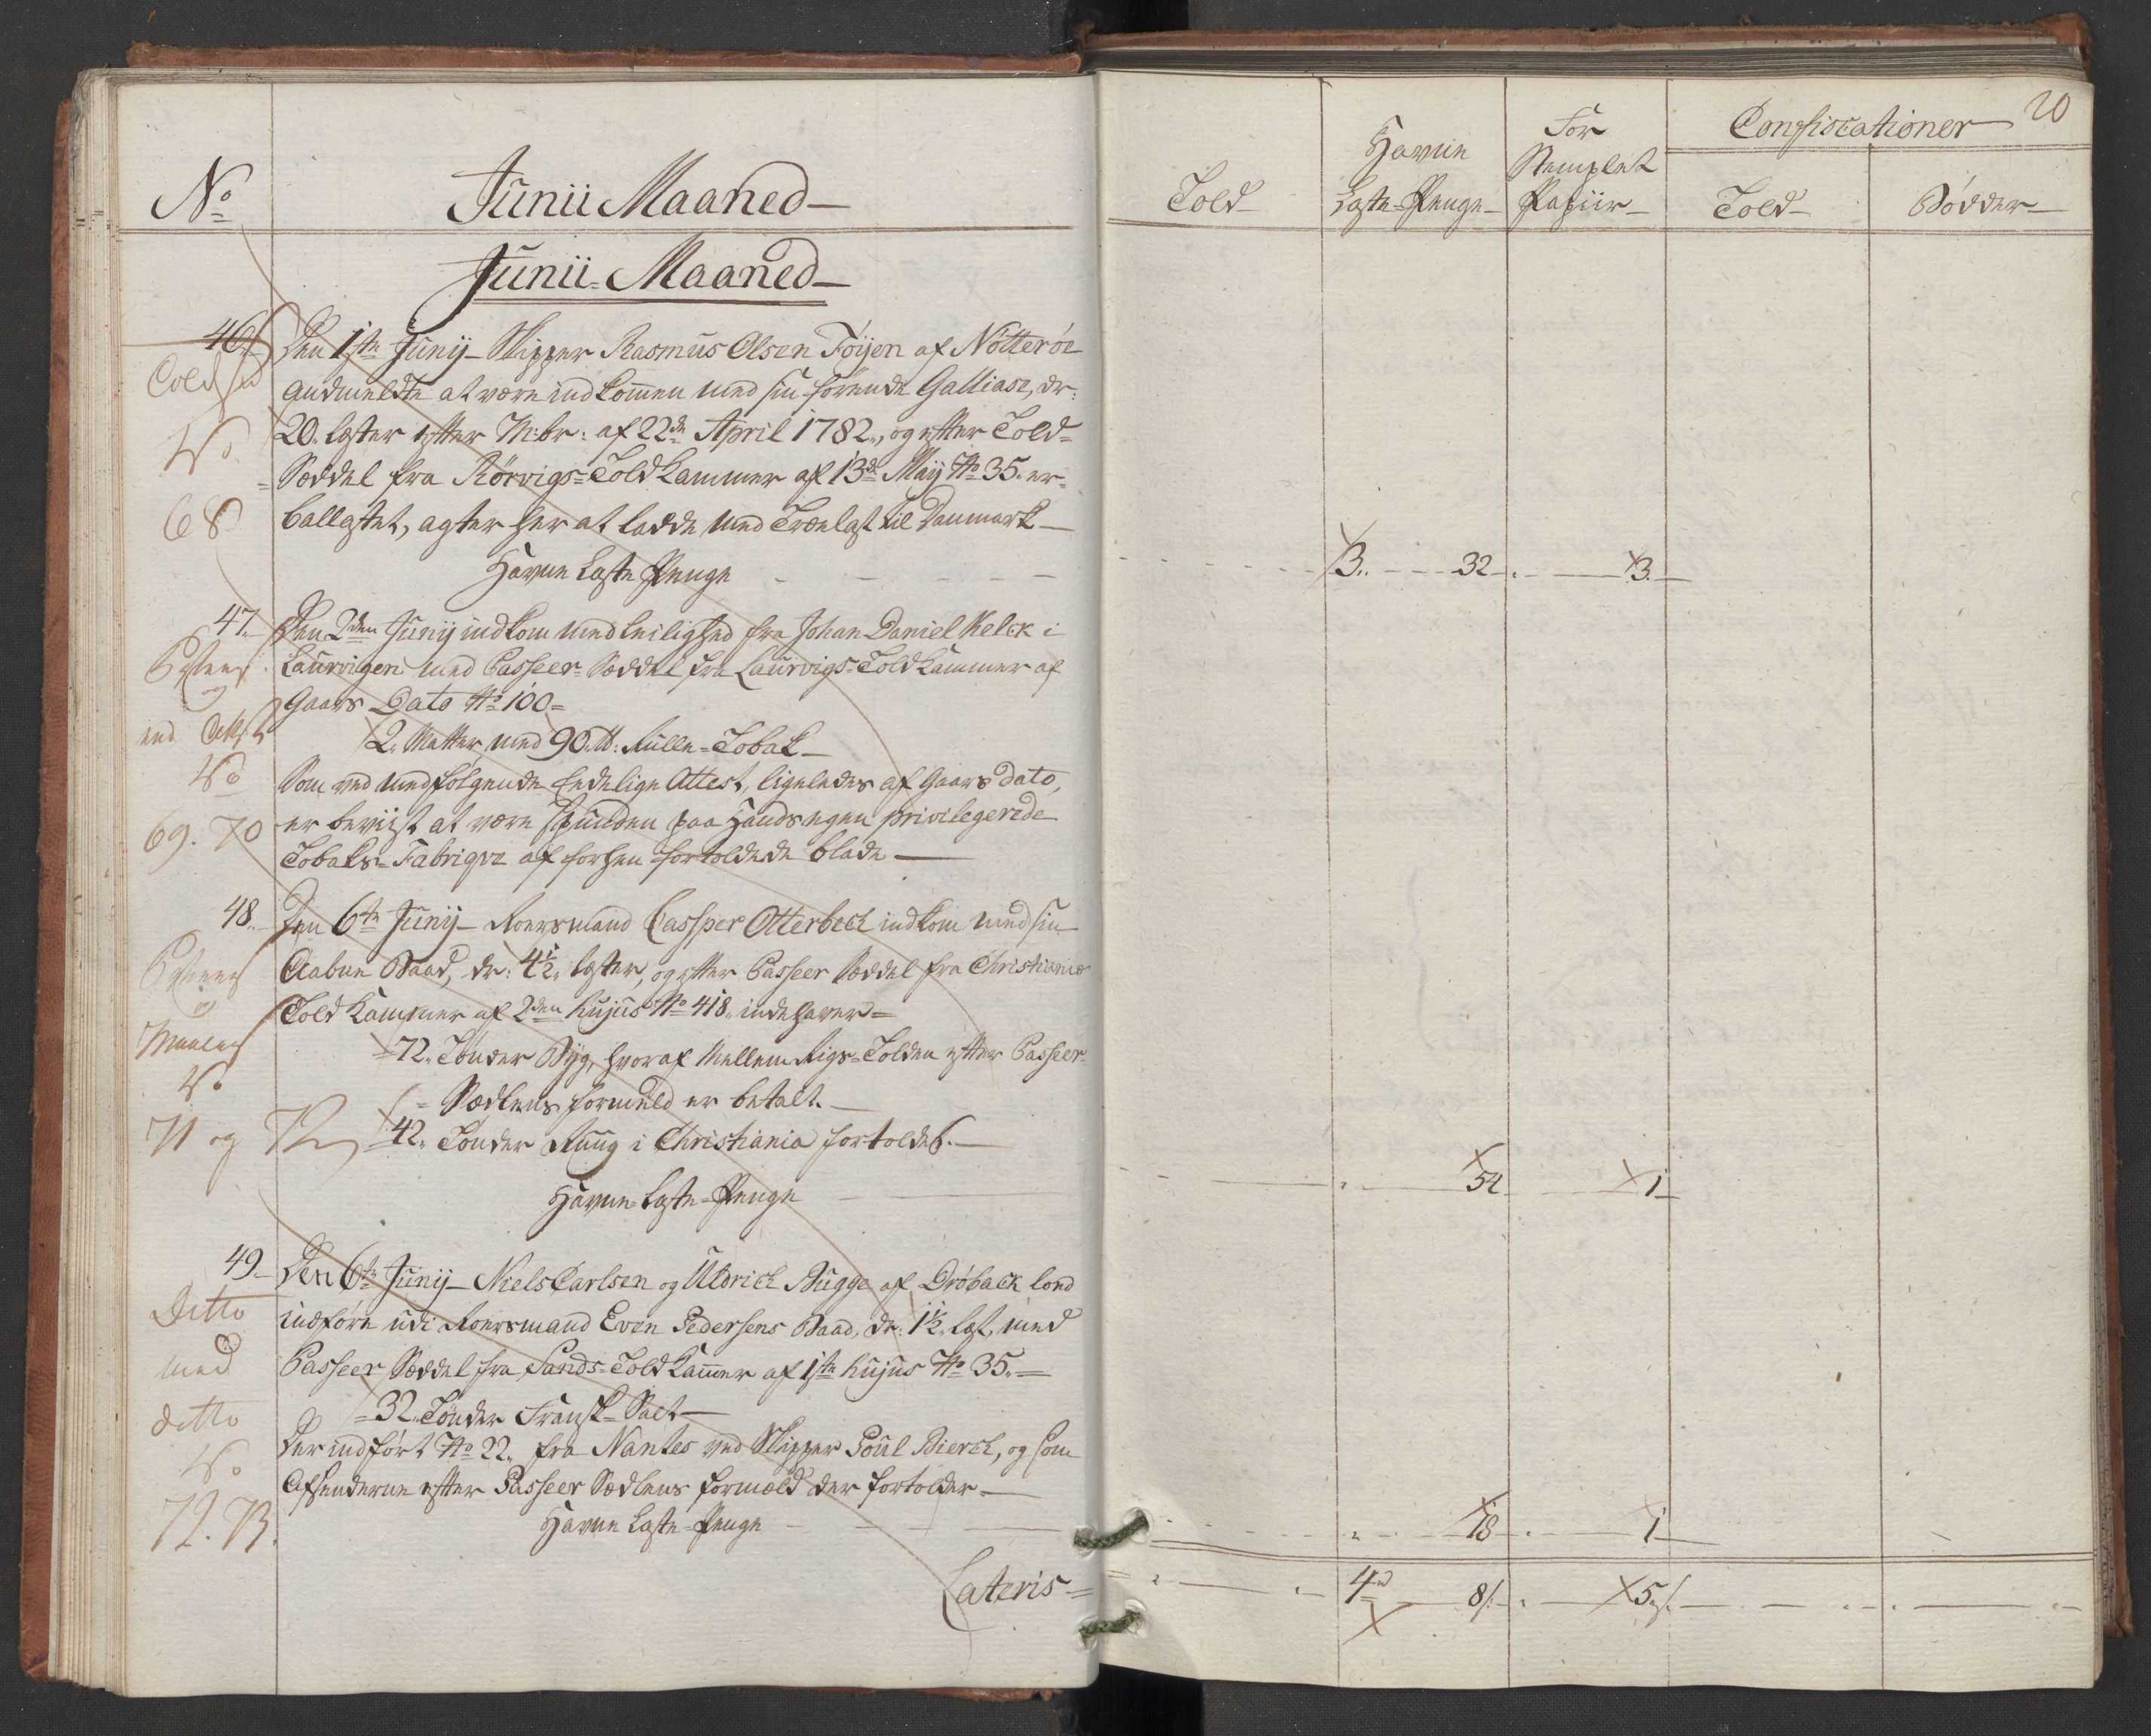 No
Junii Maaned
Junii Maaned
46.
Den 1ste Junij Skipper Rasmus Olsen Föyen af Nötteröe
andmeldte at være indkomen med sin förende Galliase, dr:
No
20. læster efter M:br: af 22de April 1782., og efter Told-
Sæddel fra Rörvigs-Told Kammer af 13de Maij No 35. er
68
ballastet, agter her at ladde med Trælast til Danmark
Havne Læste Penge
47.
Den 2den Junij indkom med leilighed fra Johan Daniel Kelck i
Laurvigen med Passeer-Sæddel fra Laurvigs-Told Kammer af
og
Gaars Dato No 100
2. Matter med 90 lb: Rulle-Tobak
No
Som ved medfölgende Eedelige Attest, ligeledes af Gaars dato,
69. 70
er beviist at være spunden paa Hands egen privilegerede
Tobaks-Fabriqve af forhen fortoldede blade
48.
Den 6te Junij Roersmand Cassper Otterbech indkom med sin
Aabne Baad, dr: 4½ læster, og efter Passeer Sæddel fra Christiania
og
Told Kammer af 2den hujus No 418. indehaver
No
72. Tönder Byg, hvoraf Mellem Rigs-Tolden efter Passeer-
Sædlens formeld er betalt.
71 og 72
42. Tönder Ruug i Christiania fortoldet.
Havne-Læste-Penge
49.
Den 6te Junij Niels Carlsen og Uldrich Bugge af Dröback lod
Ditto
indföre udi Roersmand Even Pedersens Baad, dr: 1½ læst, med
med
Passeer Sæddel fra Sands-Told Kammer af 1ste hujus No 35.
ditto
32. Tönder Fransk-Salt
No
Der indfört No 22. fra Nantes ved Skipper Poul Bierch, og som
Afsenderne efter Passeer Sædlens formæld der fortolder
72. 73.
Havne Læste-Penge
Lateris
20
Told
Havne Læste-Penge
For Stemplet Papiir
Confiscationer
Told
Bödder
3. 32 3.
54 1
18 1
4rd 8s. 5s.